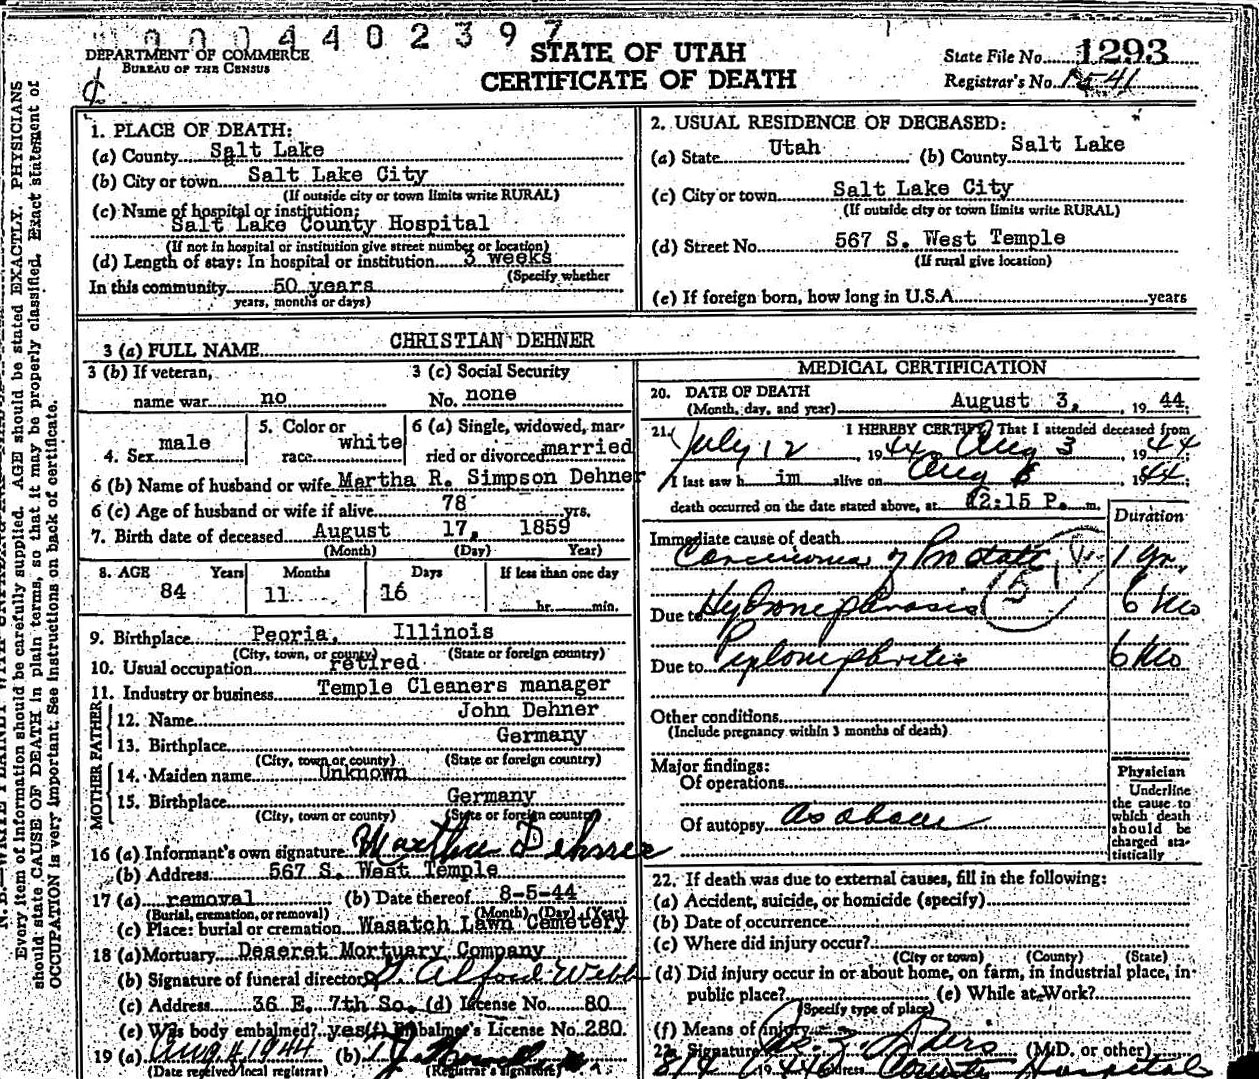 0004402397
DEPARTMENT OF COMMERCE
BUREAU OF THE CENSUS
STATE OF UTAH
CERTIFICATE OF DEATH
State File No. 1293
Registrar's No. 1541
Every item of information should be carefully supplied. AGE should be stated EXACTLY. PHYSICIANS
should state CAUSE OF DEATH in plain terms, so that it may be properly classified. Exact statement of
OCCUPATION is very important. See instructions on back of certificate.
1. PLACE OF DEATH:
(a) County Salt Lake
(b) City or town Salt Lake City
(If outside city or town limits write RURAL)
(c) Name of hospital or institution:
Salt Lake County Hospital
(If not in hospital or institution give street number or location)
(d) Length of stay: In hospital or institution 3 weeks
(Specify whether
In this community 50 years
years, months or days)
2. USUAL RESIDENCE OF DECEASED:
(a) State Utah (b) County Salt Lake
(c) City or town Salt Lake City
(If outside city or town limits write RURAL)
(d) Street No. 567 S. West Temple
(If rural give location)
(e) If foreign born, how long in U.S.A. years
3 (a) FULL NAME CHRISTIAN DEHNER
3 (b) If veteran, 3 (c) Social Security
name war no No. none
4. Sex male 5. Color or race white 6 (a) Single, widowed, married or divorced married
6 (b) Name of husband or wife Martha R. Simpson Dehner
6 (c) Age of husband or wife if alive 78 yrs.
7. Birth date of deceased August 17, 1859
(Month) (Day) Year)
8. AGE Years Months Days If less than one day
84 11 16 hr. min.
9. Birthplace Peoria, Illinois
(City, town, or county) (State or foreign country)
10. Usual occupation retired
11. Industry or business Temple Cleaners manager
FATHER
12. Name John Dehner
13. Birthplace Germany
(City, town or county) (State or foreign country)
MOTHER
14. Maiden name Unknown
15. Birthplace Germany
(City, town or county) (State or foreign country
16 (a) Informant's own signature Martha Dehner
(b) Address 567 S. West Temple
17 (a) removal (b) Date thereof 8-5-44
(Burial, cremation, or removal) (Month) (Day) (Year)
(c) Place: burial or cremation Wasatch Lawn Cemetery
18 (a) Mortuary Deseret Mortuary Company
(b) Signature of funeral director Alford Webb
(c) Address 36 E. 7th So. (d) License No. 80
(e) Was body embalmed? yes (f) Embalmer's License No. 280
19 (a) Aug 4, 1944 (b)
(Date received local registrar) (Registrar's signature)
MEDICAL CERTIFICATION
20. DATE OF DEATH
(Month, day, and year) August 3, 1944.
21. I HEREBY CERTIFY, That I attended deceased from
July 12, 1944, Aug 3 1944
I last saw him alive on Aug 1944
death occurred on the date stated above, at 12:15 P. m.
Duration
Immediate cause of death
Carcinoma of Prostate 1 yr.
Due to Hydronephrosis 6 Mo
Due to Pyelonephritis 6 Mo
Other conditions
(Include pregnancy within 3 months of death)
Major findings:
Of operations
Of autopsy as above
Physician
Underline
the cause to
which death
should be
charged sta-
tistically
22. If death was due to external causes, fill in the following:
(a) Accident, suicide, or homicide (specify)
(b) Date of occurrence
(c) Where did injury occur?
(City or town) (County) (State)
(d) Did injury occur in or about home, on farm, in industrial place, in
public place? (e) While at Work?
(Specify type of place)
(f) Means of injury
23. Signature (M.D. or other)
8/4 1944 Address County Hospital